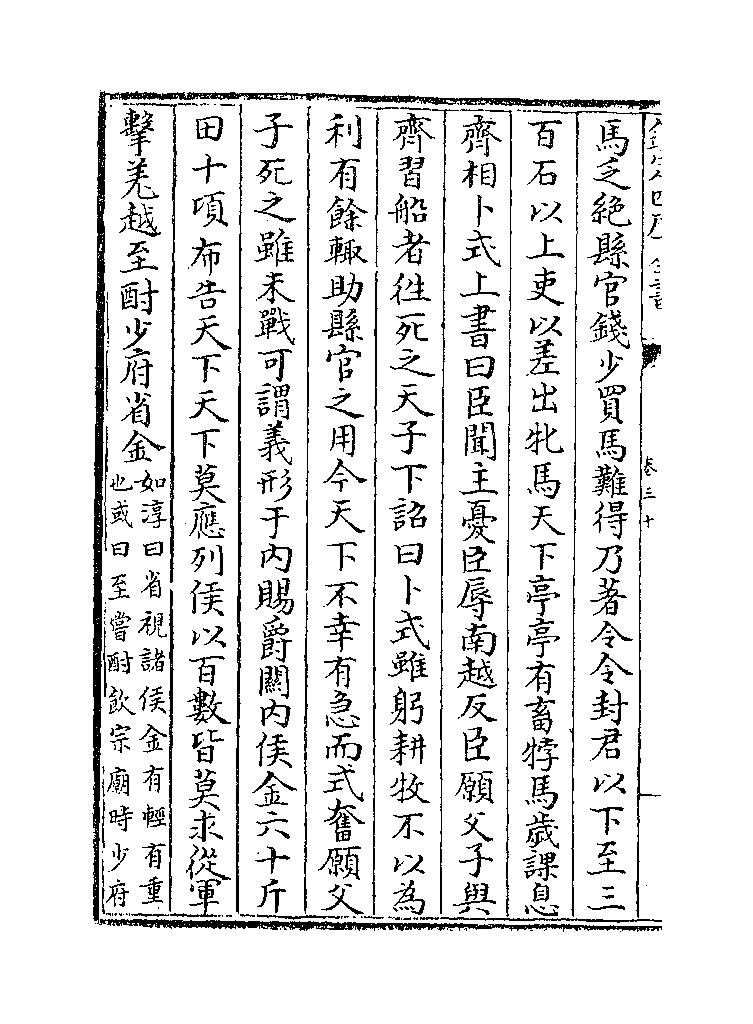 馬乏絶縣官錢少買馬難得乃著令令封君以下至三
百石以上吏以差出牝馬天下亭亭有畜牸馬歲課息
齊相卜式上書曰臣聞主憂臣辱南越反臣願父子與
齊習船者徃死之天子下詔曰卜式雖躬耕牧不以為
利有餘輙助縣官之用今天下不幸有急而式奮願父
子死之雖未戰可謂義形于内賜爵關内侯金六十斤
田十頃布告天下天下莫應列侯以百數皆莫求從軍
擊羌越至酎少府省金如淳曰省視諸侯金有輕有重
也或曰至嘗酎飲宗廟時少府
卷三十